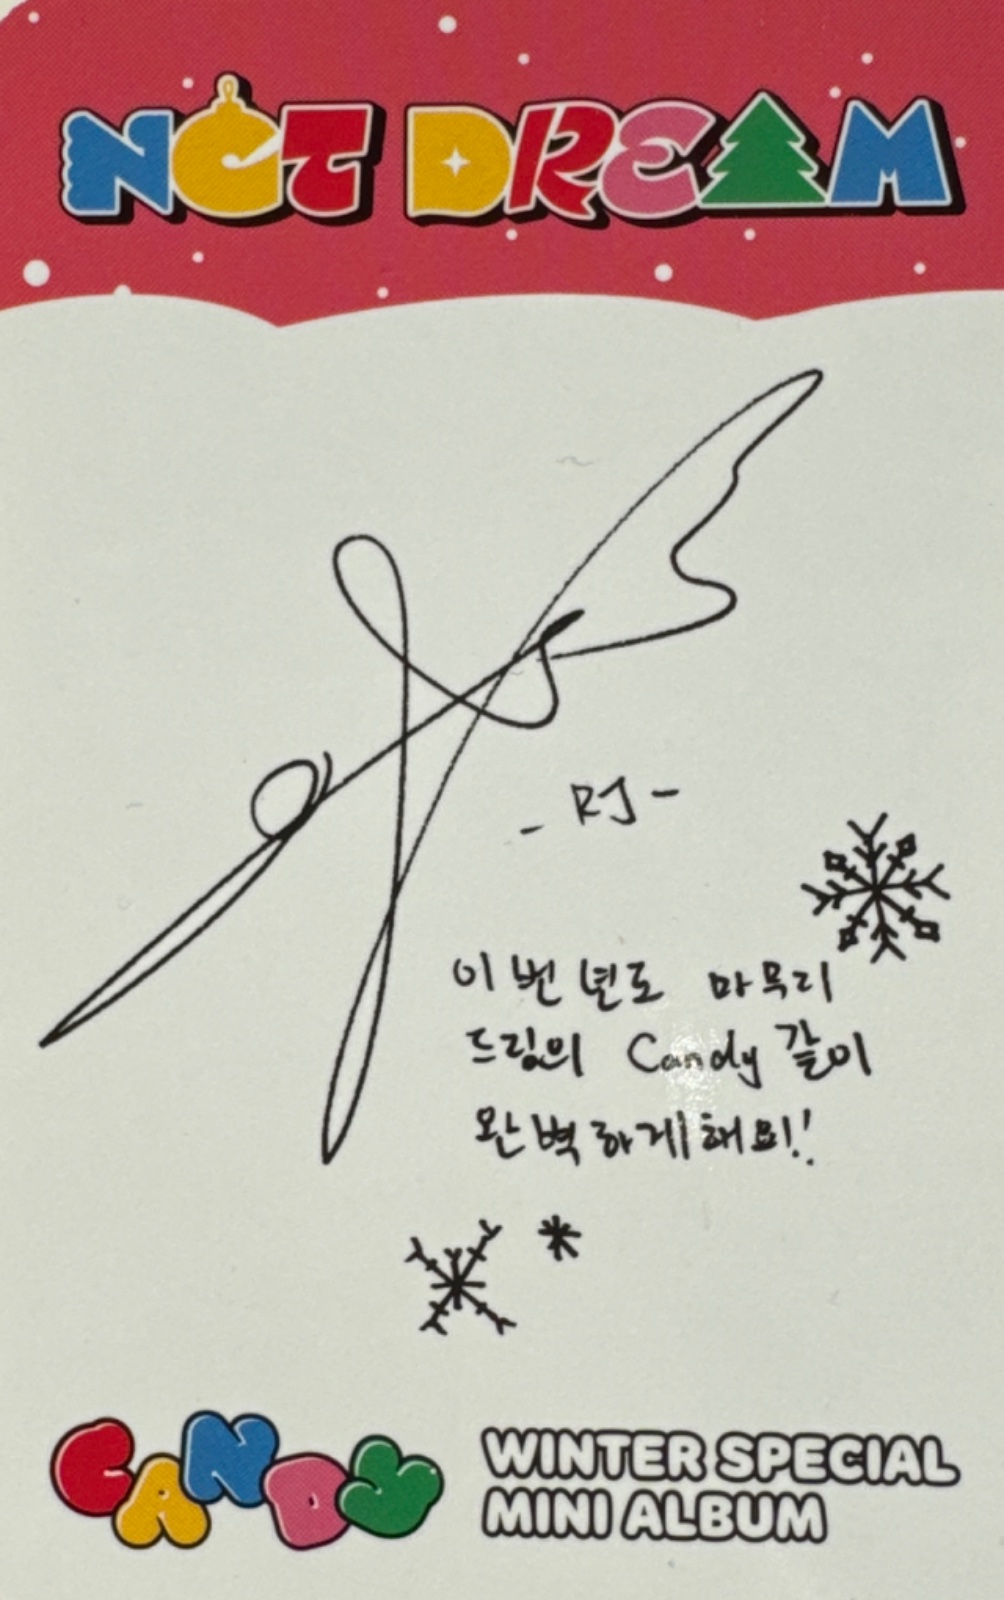 NCT DREAM
- RJ -
이번년도 마무리
드림의 Candy 같이
완벽하게해요!!
CANDY
WINTER SPECIAL
MINI ALBUM